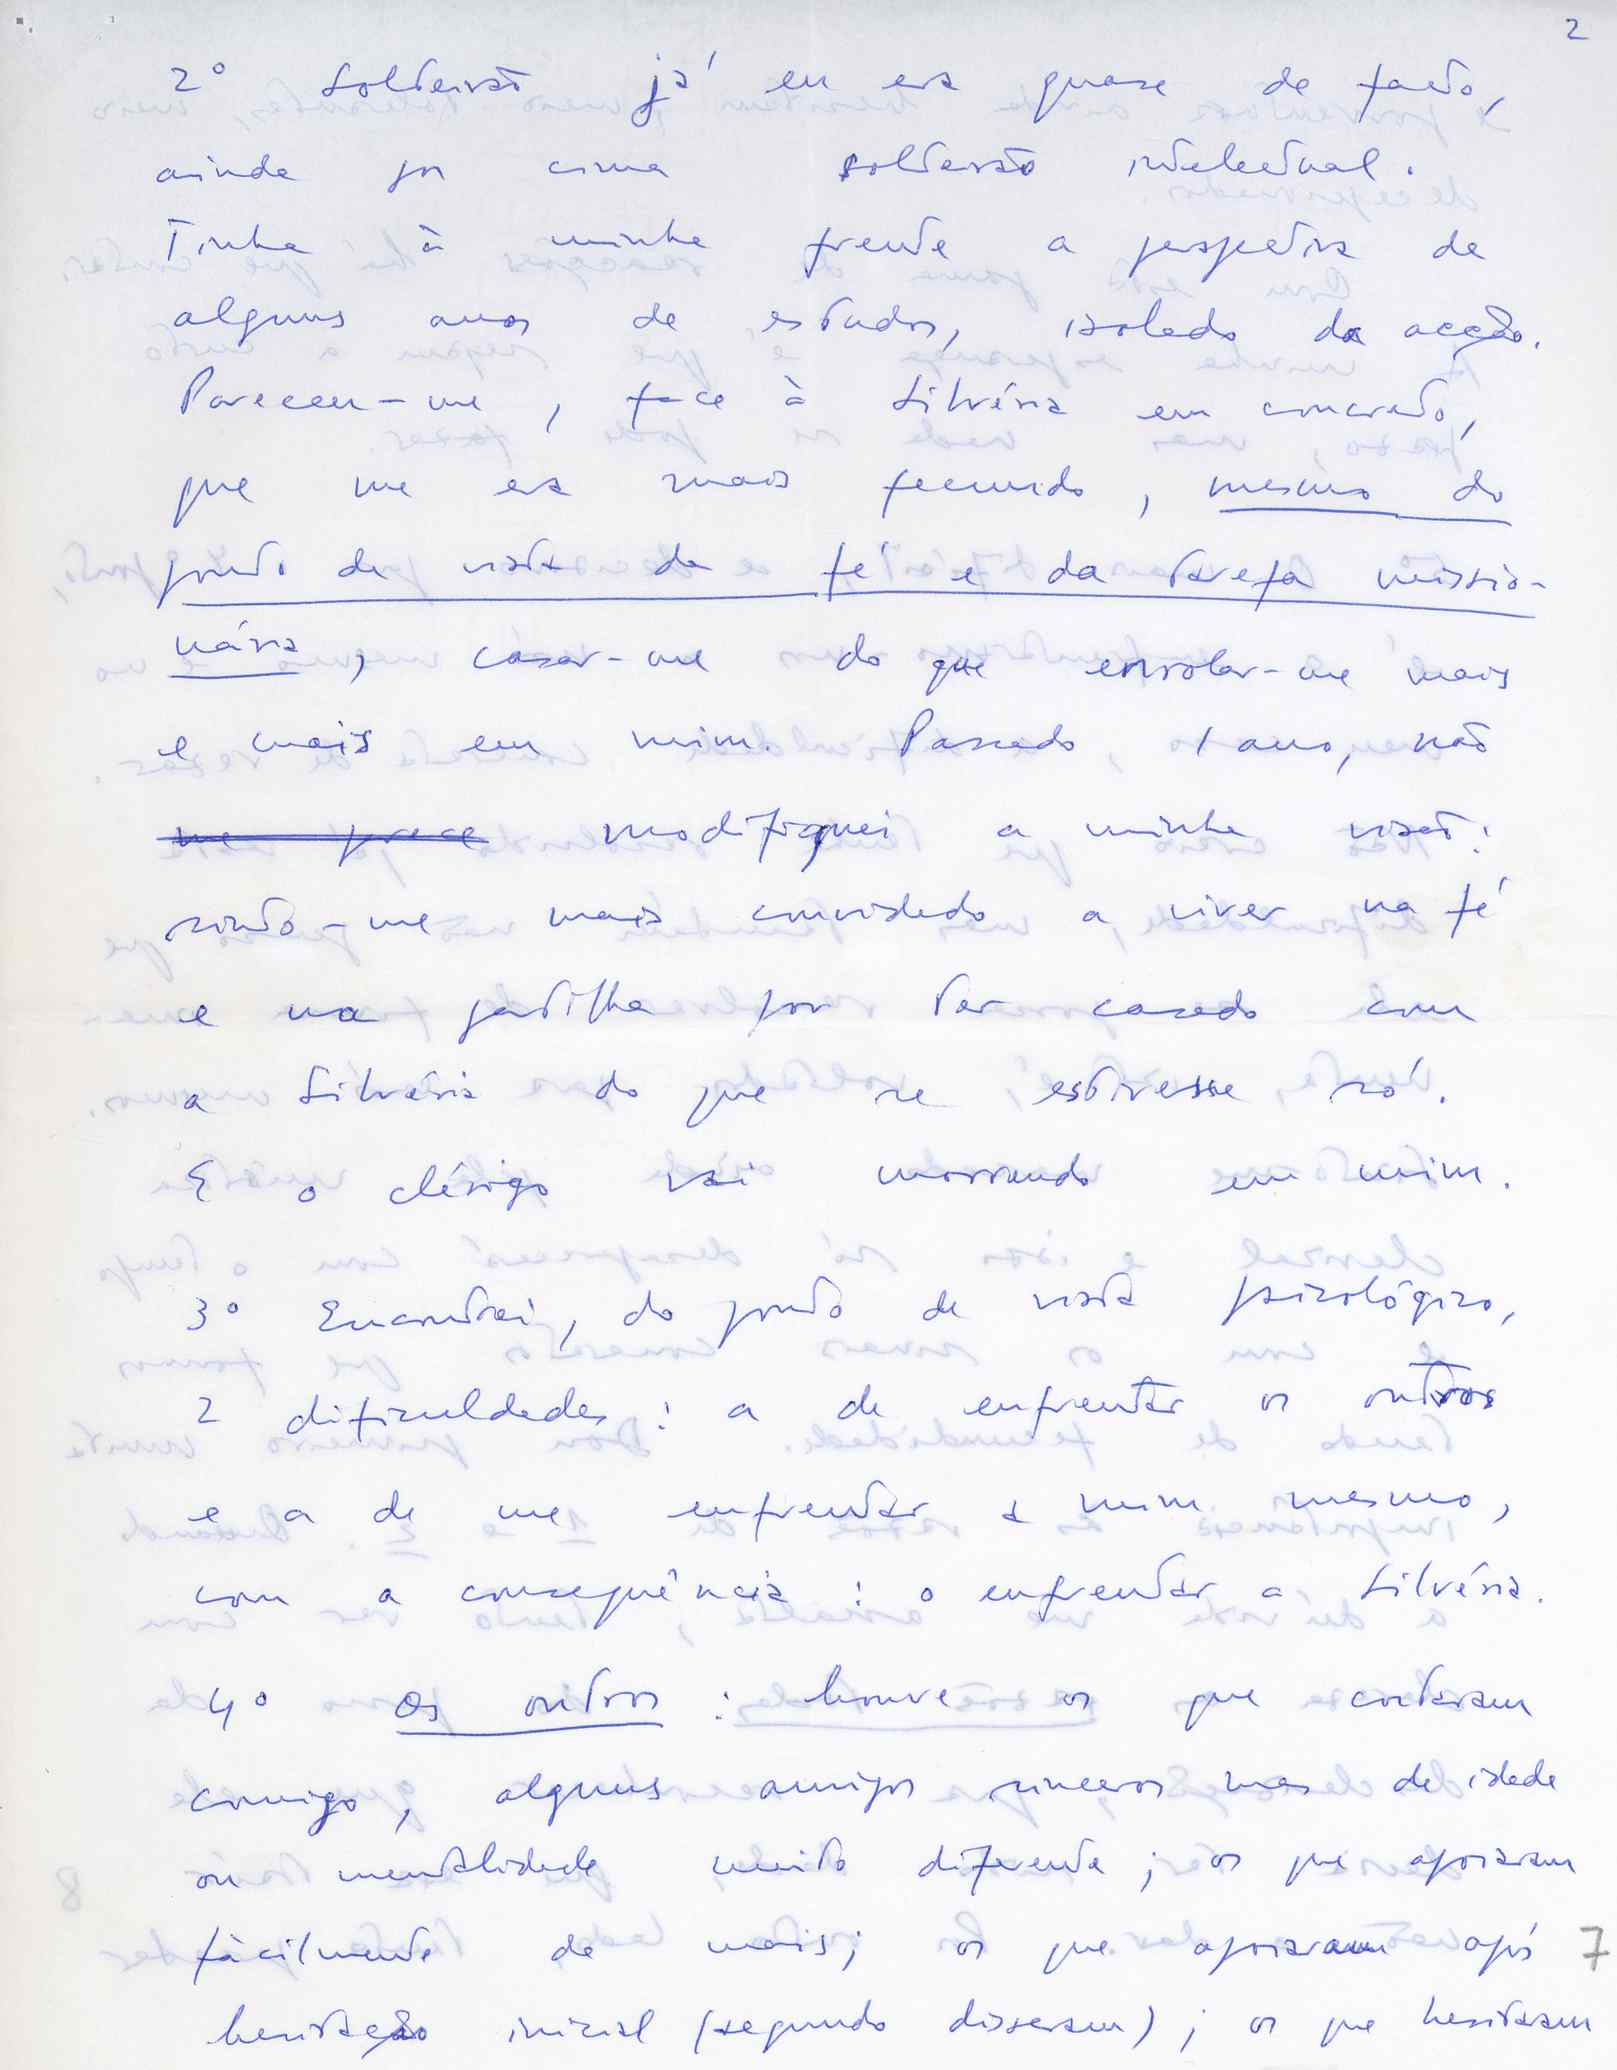 2
2º Solteirão já eu era quase de facto,
ainda por cima solteirão intelectual.
Tinha à minha frente a perspectiva de
alguns anos de estudos, isolado da acção.
Pareceu-me, face à Silvéria em concreto,
que me era mais fecundo, mesmo do
ponto de vista da fé e da tarefa missio-
nária, casar-me do que enrolar-me mais
e mais em mim. Passado 1 ano, não
modifiquei a minha visão:
sinto-me mais convidado a viver na fé
e na partilha por ter casado com
a Silvéria do que se estivesse só.
E o clérigo vai morrendo em mim.
3º Encontrei, do ponto de vista psicológico,
2 dificuldades: a de enfrentar os outros
e a de me enfrentar a mim mesmo,
com a consequência: o enfrentar a Silvéria.
4º Os outros: houve os que cortaram
comigo, alguns amigos sinceros mas de idade
ou mentalidade muito diferente; os que apoiaram
fàcilmente de mais; os que apoiaram após
hesitação inicial (segundo disseram); os que hesitaram
7